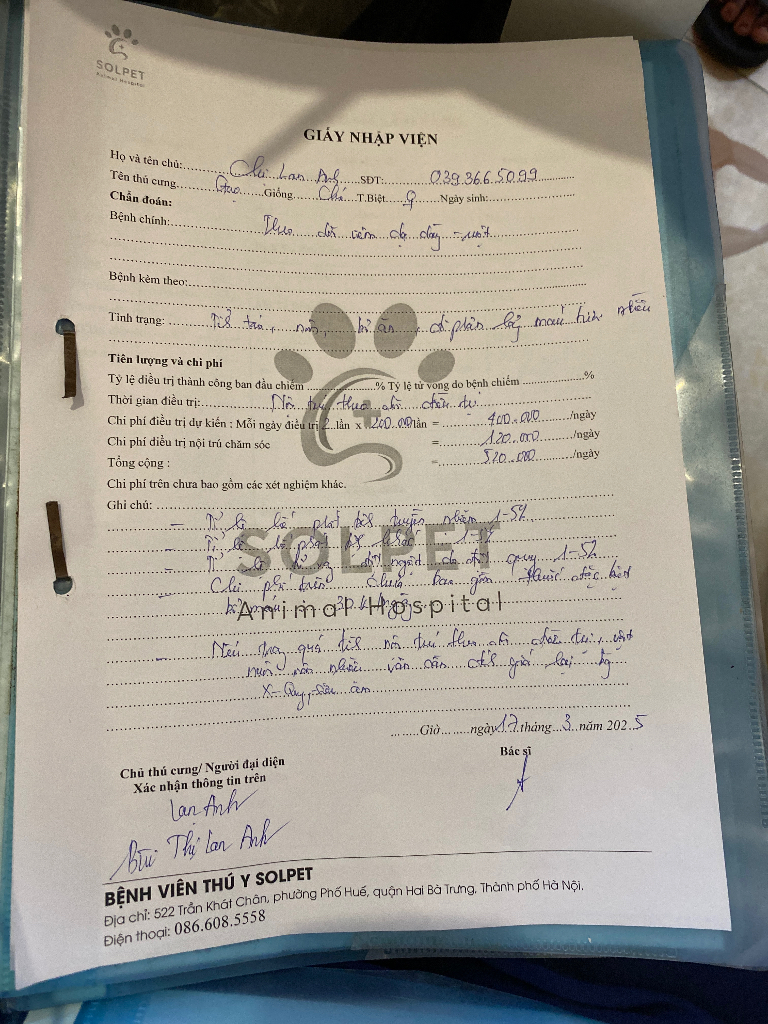 SOLPET
Animal Hospital
GIẤY NHẬP VIỆN
Họ và tên chủ: Chị Lan Anh SĐT: 0393665099
Tên thú cưng Gạo Giống Chó T.Biệt ♀ Ngày sinh:
Chẩn đoán:
Bệnh chính: Theo dõi viêm dạ dày - ruột
Bệnh kèm theo:
Tình trạng: nôn, bỏ ăn, đi phân máu nhiều
Tiên lượng và chi phí
Tỷ lệ điều trị thành công ban đầu chiếm % Tỷ lệ tử vong do bệnh chiếm %
Thời gian điều trị: Nội trú theo dõi điều trị
Chi phí điều trị dự kiến : Mỗi ngày điều trị 2 lần x 200.000 lần = 400.000 /ngày
Chi phí điều trị nội trú chăm sóc = 120.000 /ngày
Tổng cộng : = 520.000 /ngày
Chi phí trên chưa bao gồm các xét nghiệm khác.
Ghi chú:
- Tỉ lệ phát truyền nhiễm 1-5%
- Tỉ lệ khác 1-5%
- Tỉ lệ đột ngột do đột quỵ 1-5%
- Chi phí trên chưa bao gồm thuốc đặc biệt
SOLPET
Animal Hospital
- Nếu trong quá nội trú theo dõi điều trị, vật
nuôi nôn nhiều vẫn cần giá lại bằng
X-Quang, siêu âm
Giờ ngày 17 tháng 3 năm 2025
Chủ thú cưng/ Người đại diện
Xác nhận thông tin trên
Bác sĩ
Lan Anh
Bùi Thị Lan Anh
BỆNH VIÊN THÚ Y SOLPET
Địa chỉ: 522 Trần Khát Chân, phường Phố Huế, quận Hai Bà Trưng, Thành phố Hà Nội.
Điện thoại: 086.608.5558